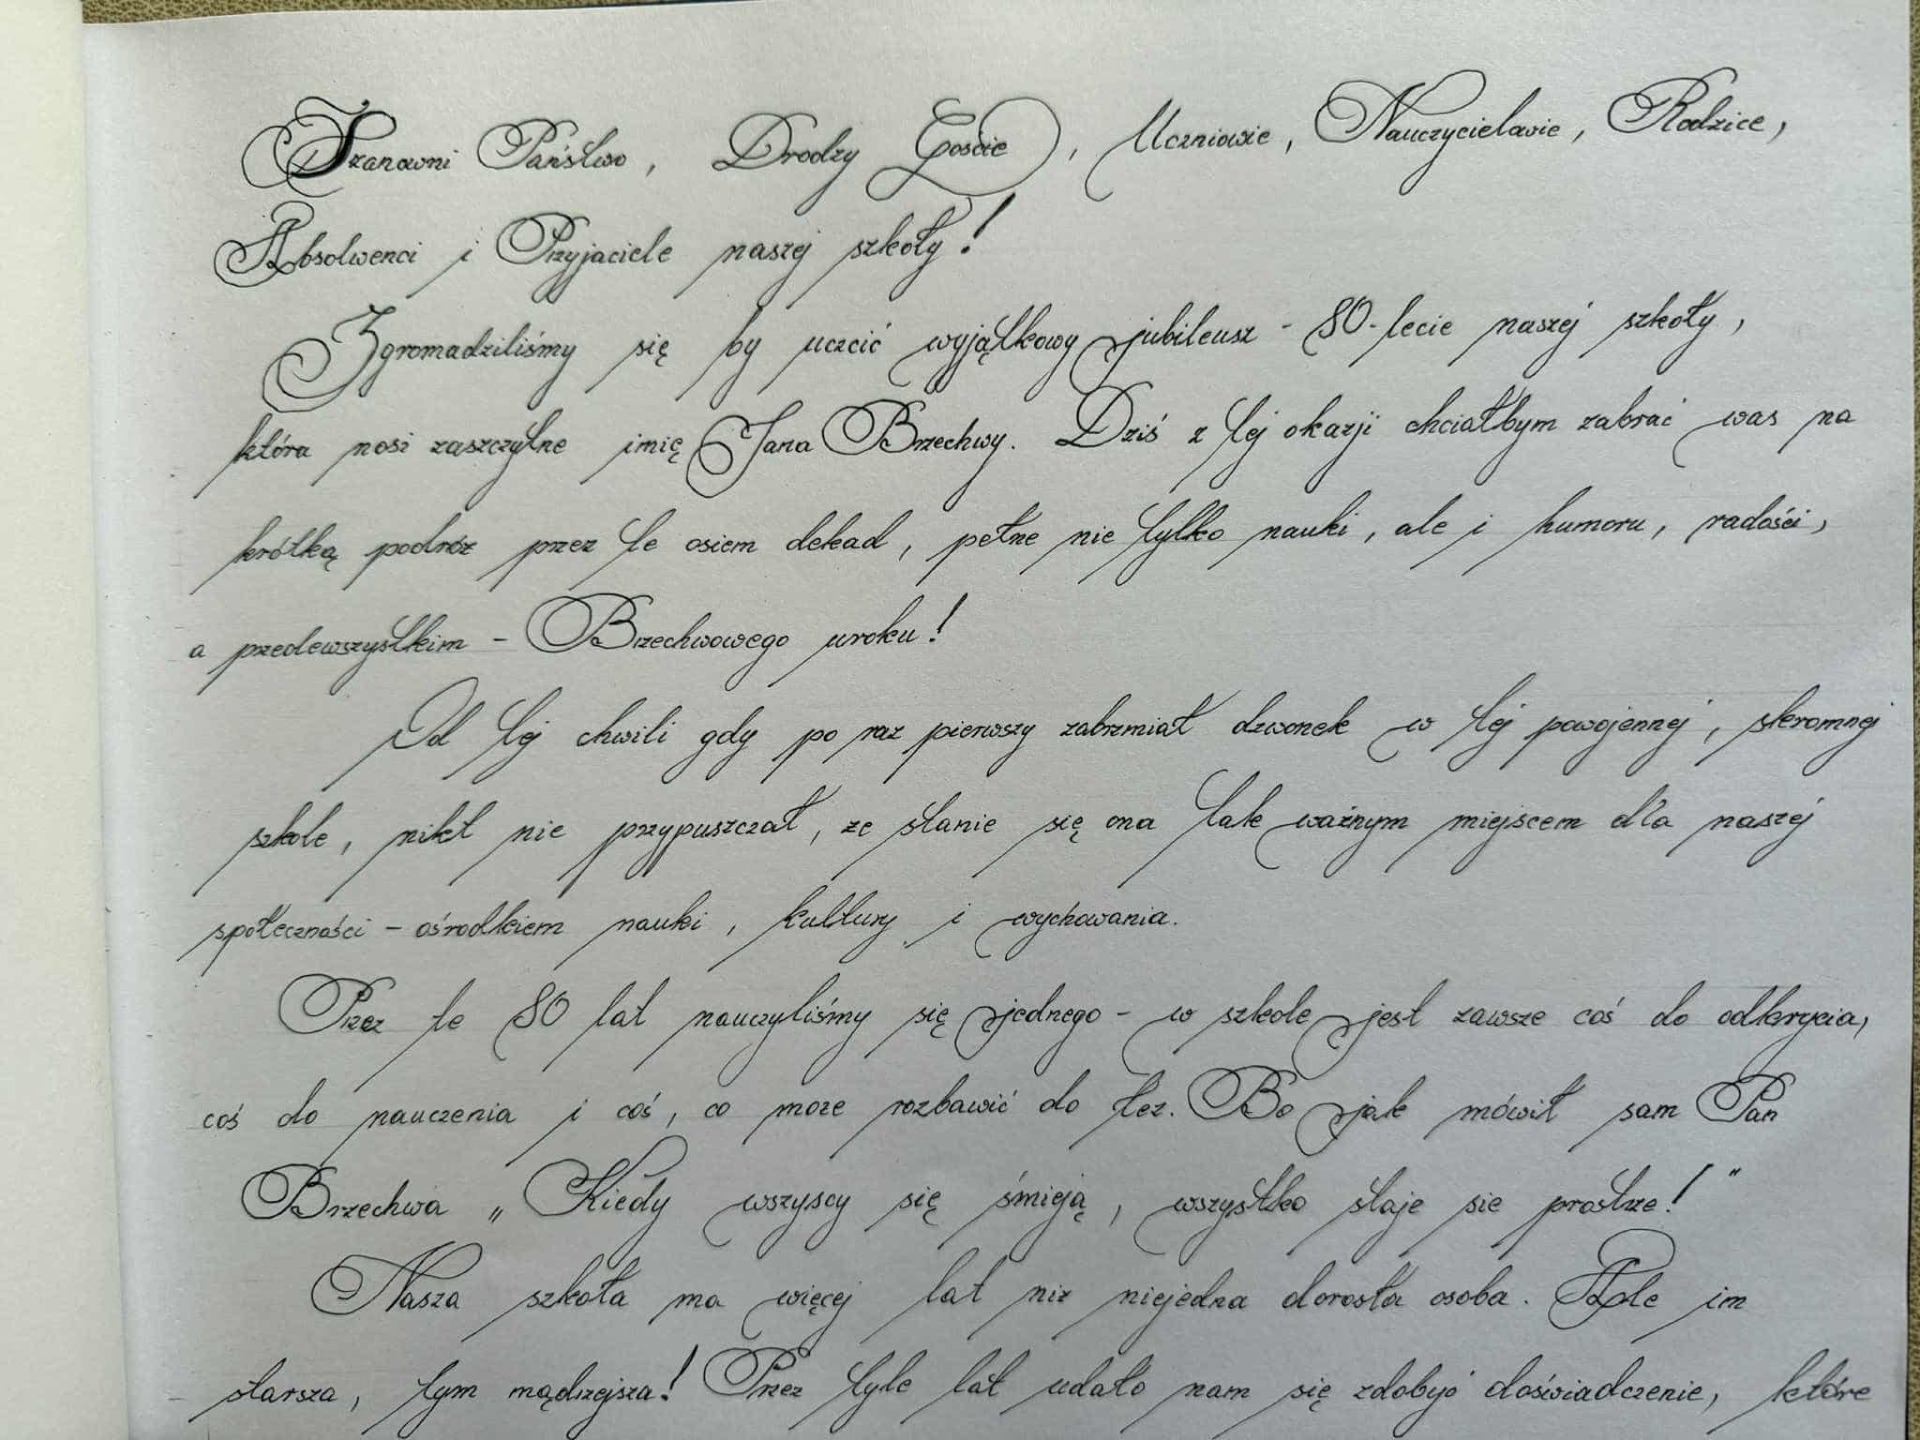 Szanowni Państwo, Drodzy Goście, Uczniowie, Nauczyciele, Rodzice,
Absolwenci i Przyjaciele naszej szkoły!
Zgromadziliśmy się by uczcić wyjątkowy jubileusz - 80-lecie naszej szkoły,
która nosi zaszczytne imię Jana Brzechwy. Dziś z tej okazji chciałbym zabrać was na
krótką podróż przez te osiem dekad, pełne nie tylko nauki, ale i humoru, radości,
a przedewszystkim - Brzechwowego uroku!
Od tej chwili gdy po raz pierwszy zabrzmiał dzwonek w tej powojennej, skromnej
szkole, nikt nie przypuszczał, ze stanie się ona tak ważnym miejscem dla naszej
społeczności - ośrodkiem nauki, kultury i wychowania.
Przez te 80 lat nauczyliśmy się jednego - w szkole jest zawsze coś do odkrycia,
coś do nauczenia i coś, co moze rozbawić do łez. Bo jak mówił sam Pan
Brzechwa „Kiedy wszyscy się śmieją, wszystko staje sie prostsze!"
Nasza szkoła ma więcej lat niz niejedna dorosła osoba. Ale im
starsza, tym mądrzejsza! Przez tyle lat udało nam się zdobyć doświadczenie, które